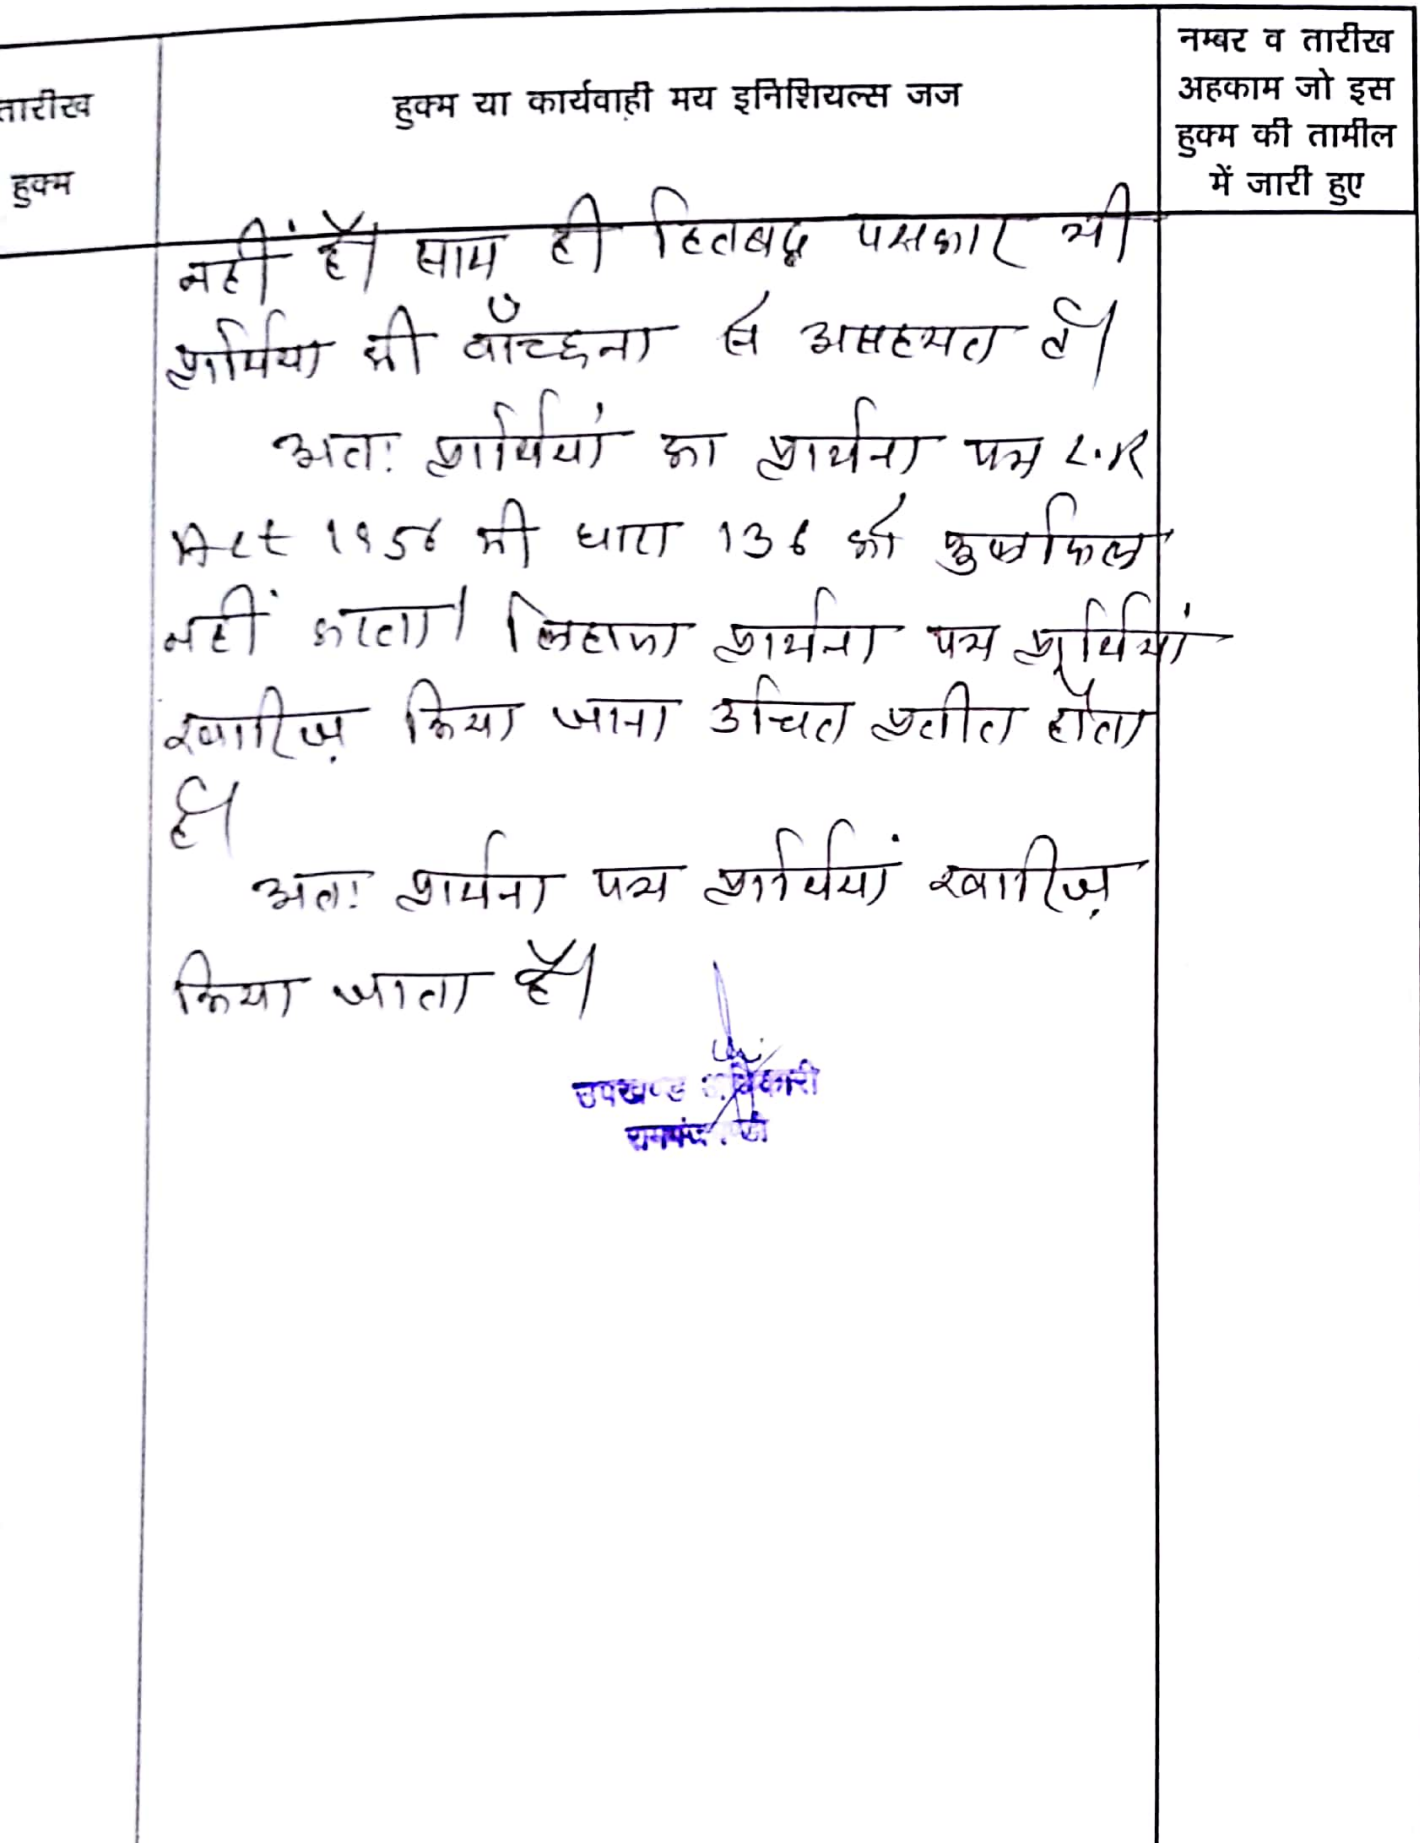 तारीख
हुक्म
हुक्म या कार्यवाही मय इनिशियल्स जज
नम्बर व तारीख
अहकाम जो इस
हुक्म की तामील
में जारी हुए
नहीं है। साथ ही हितबद्ध पक्षकार भी
प्रार्थिया की वाँच्छना से असहमत है।
अतः प्रार्थियां का प्रार्थना पत्र L.R
Act 1956 की धारा 136 को
नहीं करता। लिहाजा प्रार्थना पत्र प्रार्थियां
खारिज़ किया जाना उचित प्रतीत होता
है।
अतः प्रार्थना पत्र प्रार्थियां खारिज़
किया जाता है।
उपखण्ड अधिकारी